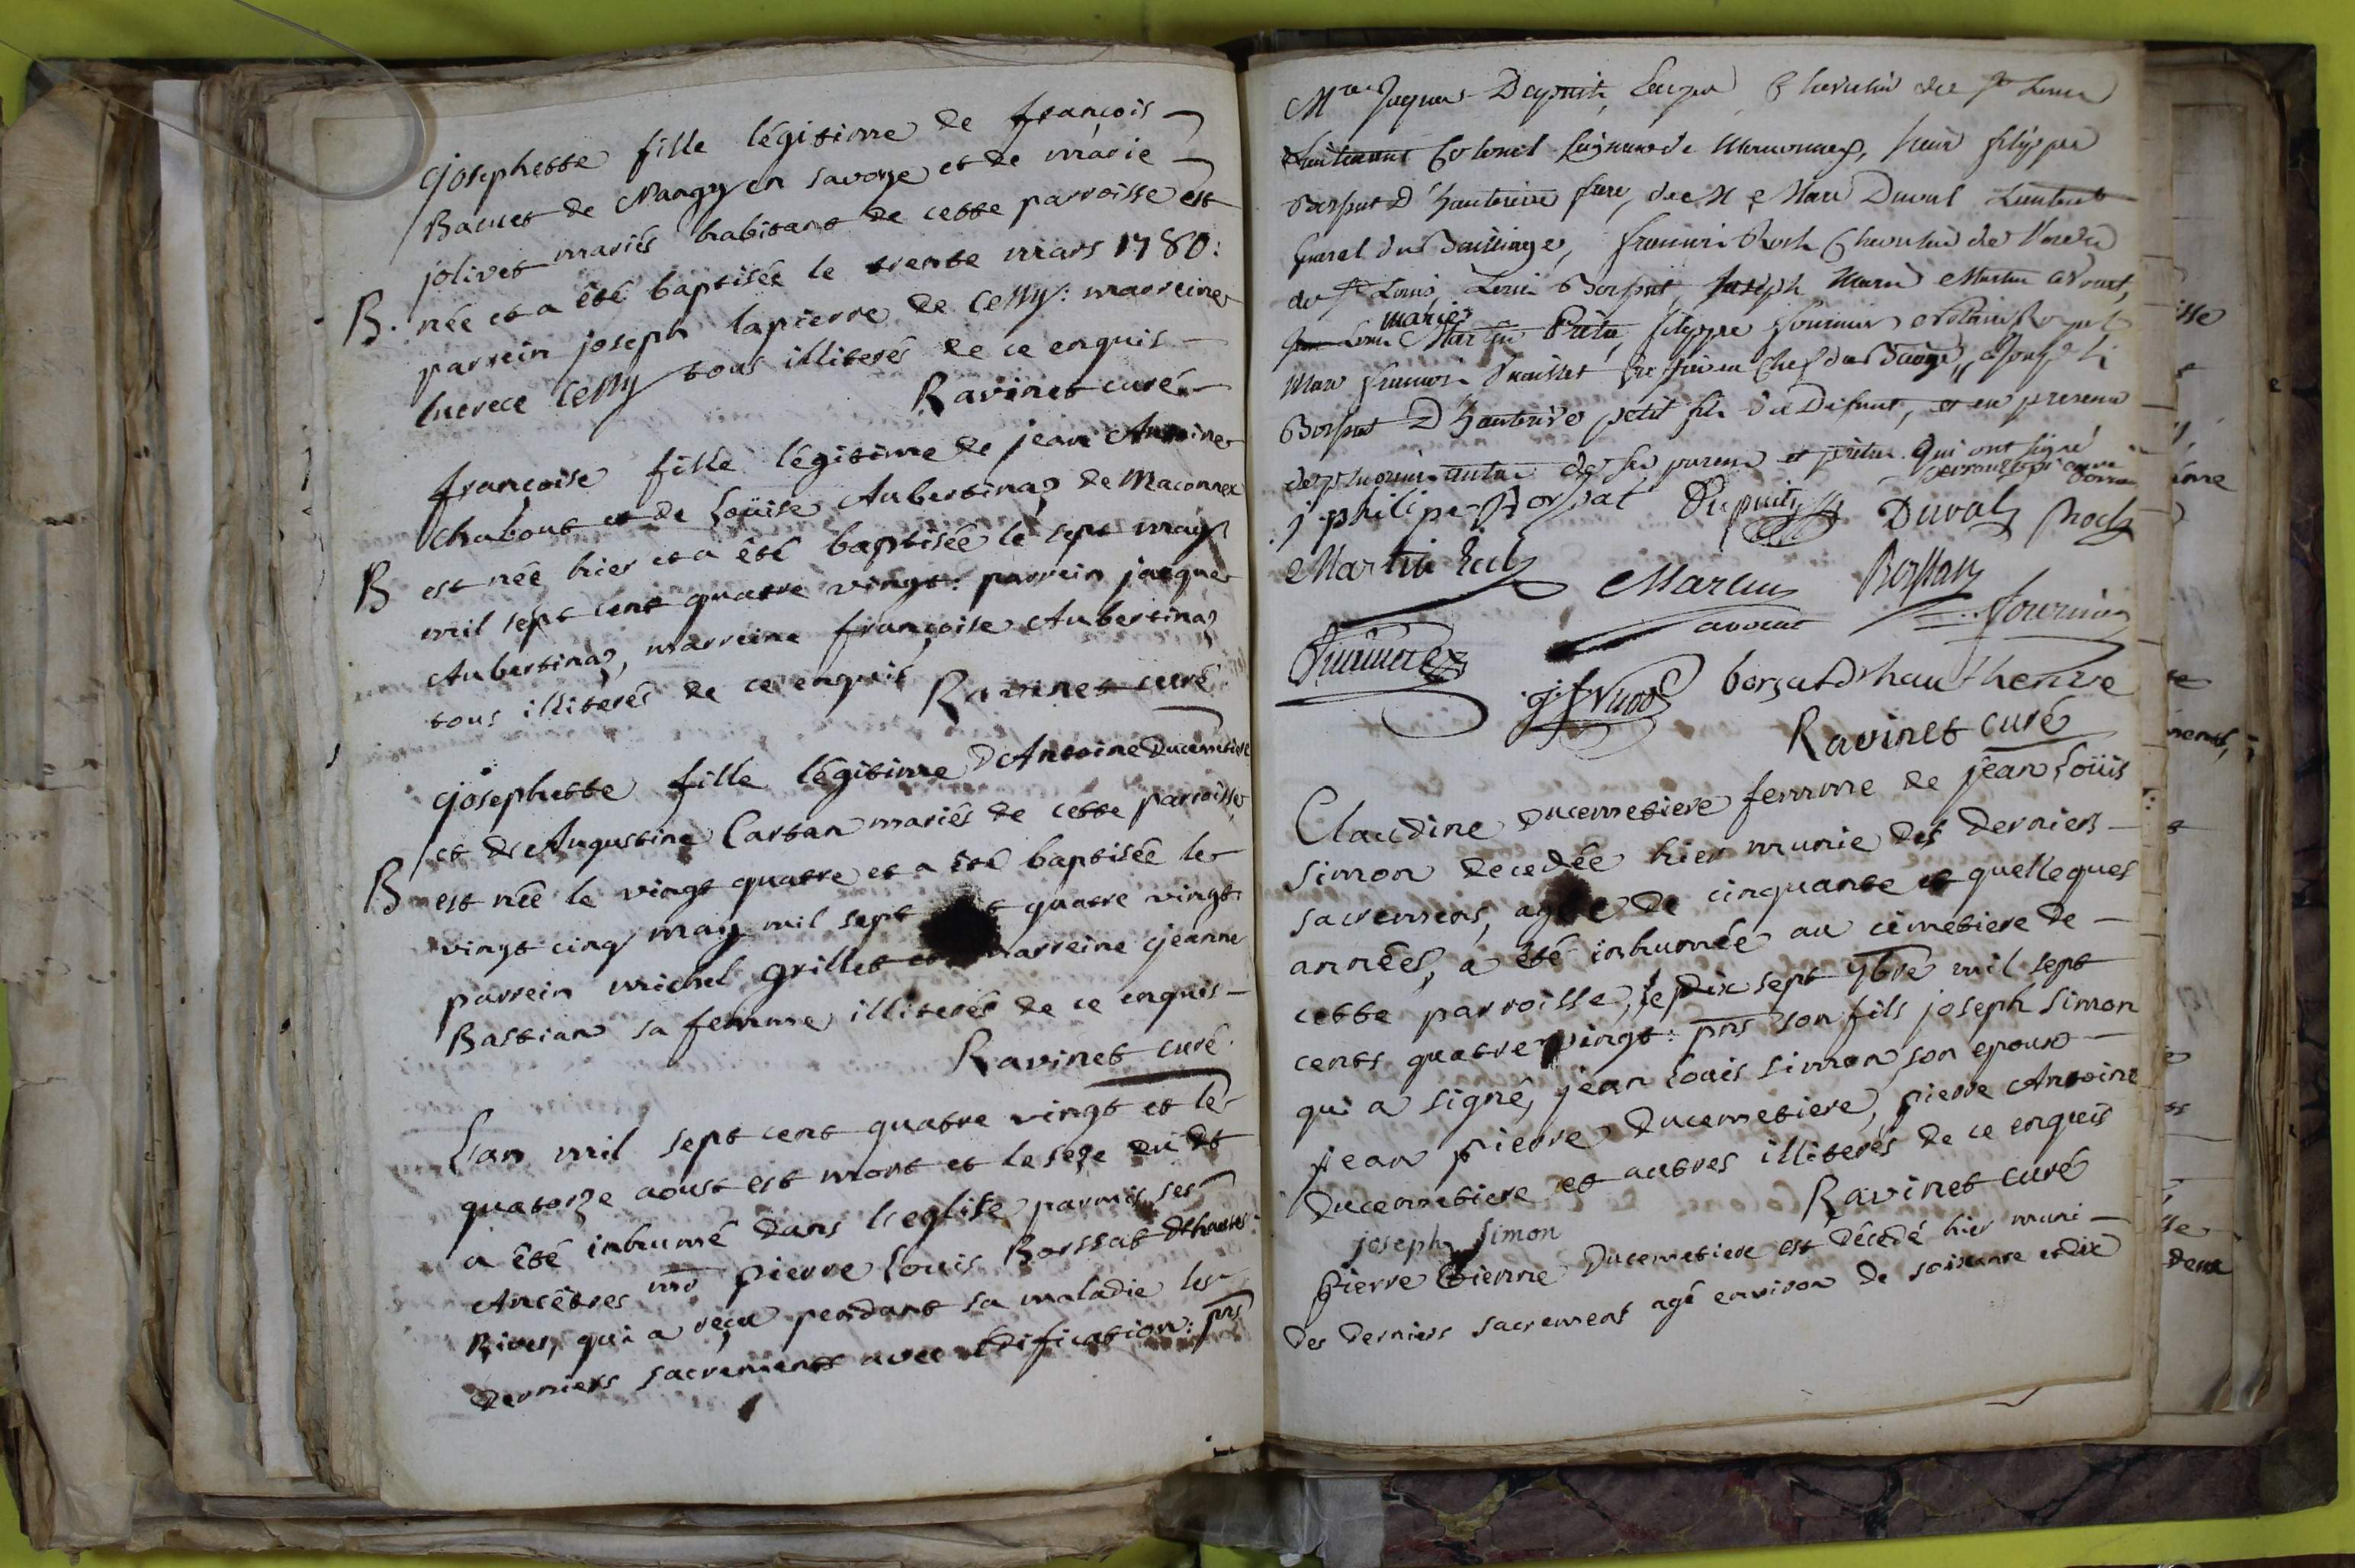 josephette fille légitime de françois
Bacuet de Nangy en savoye et de marie
jolivet mariés habitant de cette parroisse est
B. née et a été baptisée le trente mars 1780:
parrein joseph lapierre de Cessy: marreine
lucrece Cessy tous illiterés de ce enquis
Ravinet curé
françoise fille légitime de jean Antoine
chabout et de Loüise Aubertinaz de Maconnex
B est née hier et a été baptisée le sept may
mil sept cent quatre vingt: parrein jacque
Aubertinaz, marreine françoise Aubertinaz
tous illiterés de ce enquis Ravinet curé
josephette fille légitime D'Antoine Ducemetiere
et de Augustine Cartan mariés de cette parroisse
B est née le vingt quatre et a été baptisée le
vingt cinq may mil sept quatre vingt
parrein michel grillet et marreine jeanne
Bastian sa femme illiterés de ce enquis
Ravinet curé
L'an mil sept cent quatre vingt et le
quatorze aoust est mort et le seze du dt
a été inhumé dans l'eglise parmis ses
Ancêtres mre pierre Louis Borssat dhaute
Rives, qui a reçu pendant sa maladie les
derniers sacrements avec edification: pns
Mre Jaques Chevalier de St Louis
Lieutenant Colonel Seigneur de
Borssat D'hauterive frere, de M e Marc Duval Lieutent
general du Bailliage, Roch Chevalier de l'ordre
de St Louis, Louis Borssat, Joseph Marie Martin avocat,
mariés
Martin Prêtre, filippe fournier
Marc françois en Chef du Bailliage,
Borssat D'hauterive petit fils du Defunt, et en presence
de plusieurs autres de ses parens et prêtres Qui ont signé
j philipe Borssat Dupuits Duval Roch
Martin Recl
Martin Borssat
avocat fournier
borsat d'hautherive
Ravinet curé
Claudine Ducemetiere femme de jean Loüis
simon decedée hier munie des derniers
sacremens, agée de cinquante et quelleques
années, a été inhumée au cimetiere de
cette parroisse, le dix sept 9bre mil sept
cents quatre vingt: pns son fils joseph simon
qui a signé, jean Louis simon son epoux
jean pierre Ducemetiere, pierre Antoine
Ducemetiere et autres illiterés de ce enquis
Ravinet curé
joseph simon
pierre Etienne Ducemetiere est décedé hier muni
des derniers sacremens agé environ de soixante et dix